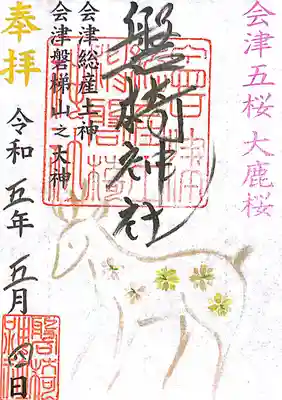 会津五桜 大鹿桜
盤椅神社
会津総産土神
会津磐梯山之大神
奉拝
令和五年 五月 四日